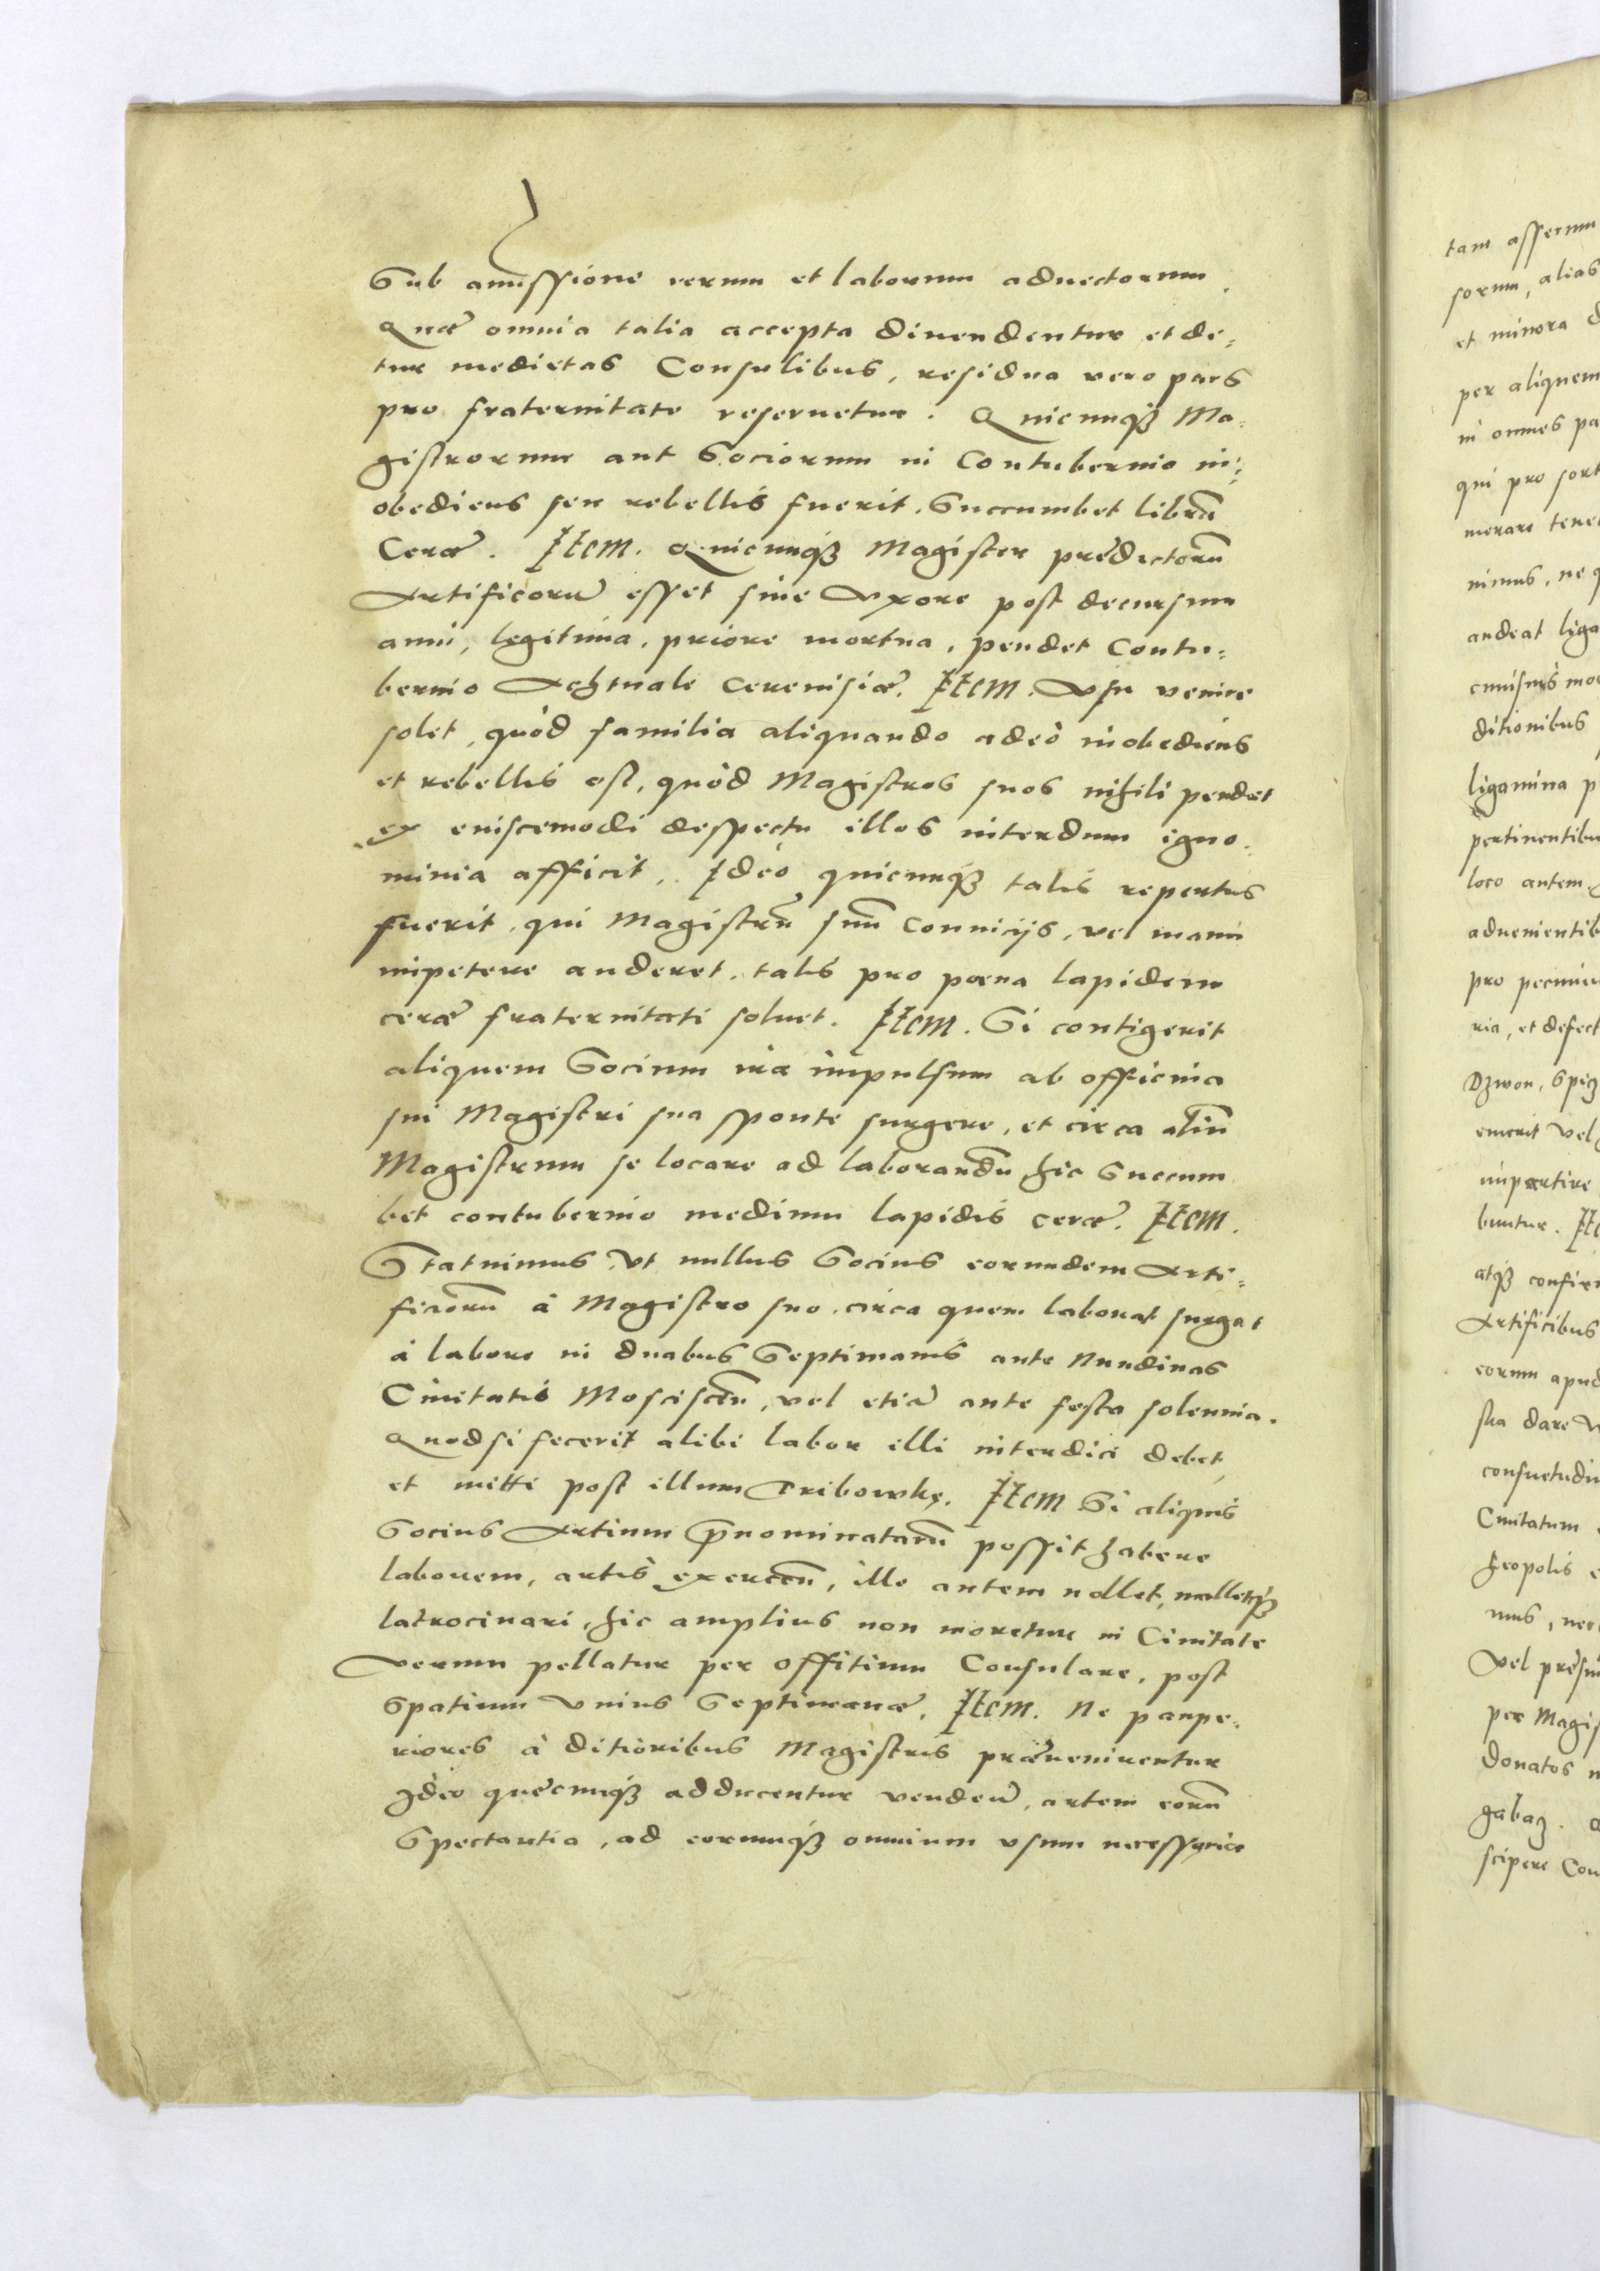 Sub amissione rerum et laborum aduectorum.
Quæ omnia talia accepta diuendentur et de=
tur medietas Consulibus, residua vero pars
pro fraternitate reseruetur. Quicunqꝫ Ma=
gistrorum aut Sociorum in Contubernio in=
obediens seu rebellis fuerit. Succumbet librã
Ceræ. Item. Quicunqꝫ Magister prædictorũ
Artificorũ esset sine Vxore post decursum
anni, legitima, priore mortua, pendet Contu=
bernio Achtuale Cereuisiæ. Item. Vsu venire
solet, quòd familia aliquando adeò inobediens
et rebellis est, quòd Magistros suos nihili pendet
ex euiscemodi despectu illos interdum igno=
minia afficit, Ideò quicunqꝫ talis repertus
fuerit, qui Magistrũ suũ conuicijs, vel manu
impetere auderet, talis pro pœna lapidem
ceræ fraternitati soluet. Item. Si contigerit
aliquem Socium ira impulsum ab officina
sui Magistri sua sponte surgere, et circa aliũ
Magistrum se locare ad laborandũ hic Succum
bet contubernio medium lapidis ceræ. Item.
Statuimus, Vt nullus Socius eorundem Arti=
ficiorũ à Magistro suo, circa quem laborat surgat
à labore in duabus Septimanis ante Nundinas
Ciuitatis Moscisceñ, vel etiã ante festa solennia.
Quodsi fecerit alibi labor illi interdici debet,
et mitti post illum Tribowkę. Item Si aliquis
Socius Artium p̃nominatarũ possit habere
laborem, artis exerceñ, ille autem nollet, malletqꝫ
latrocinari, hic amplius non moretur in Ciuitate
Verum pellatur per offitium Consulare, post
Spatium Vnius Septimanæ. Item. Ne paupe=
riores à ditioribus Magistris præuenirentur
Ideo quæcunqꝫ adducentur vendeñ, artem eorũ
Spectantia, ad eorumqꝫ omnium vsum necessaria
tam
sorum, alias
et minora
per aliquem
in omnes
qui pro
nimus, ne
audeat
ditionibus
ligamina
loco autem
ria, et
Dzwon,
emerit vel
impartire
buntur.
atqꝫ
Artificibus
eorum
dare
Ciuitatum
mus,
Vel
per
Donatos
scipere